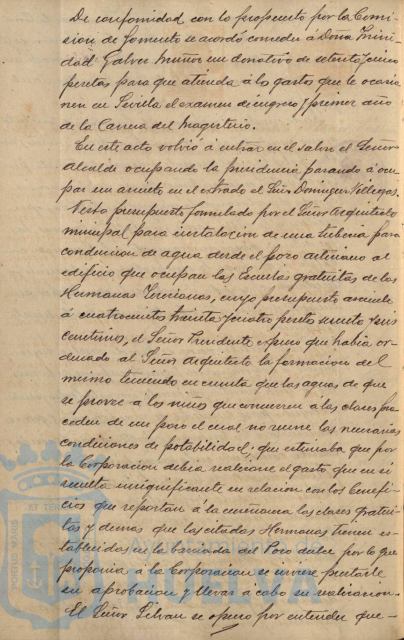 De conformidad con lo propuesto por la Comi
sion de Fomento se acordó conceder á Doña Trini
dad Galvez Muñoz un donativo de setenta y cinco
pesetas para que atienda á los gastos que le ocasio
nen en Sevilla el examen de ingreso y primer año
de la Carrera del Magisterio.
En este acto volvió á entrar en el salon el Señor
Alcalde ocupando la presidencia pasando á ocu
par un asiento en el estrado el Señor Dominguez
Visto presupuesto formulado por el Señor Arquitecto
municipal para instalacion de una tuberia para
conduccion de agua desde el pozo artesiano al
edificio que ocupan las Escuelas gratuitas de las
Hermanas Terciarias, cuyo presupuesto asciende
á cuatrocientas treinta y cuatro pesetas seis
centimos, el Señor Presidente expuso que habia or
denado al Señor Arquitecto la formacion del
mismo teniendo en cuenta que las aguas de que
se provee á los niños que concurren á las clases pro
ceden de un pozo el cual no reune las necesarias
condiciones de potabilidad; que estimaba que por
la Corporacion debia realizarse el gasto que en si
resulta insignificante en relacion con los benefi
cios que reportan á la enseñanza las clases gratui
tas y demas que las citadas Hermanas tienen es
tablecidas en la barriada del Pozo dulce por lo que
proponia á la Corporacion se sirviese prestarle
su aprobacion y llevar á cabo su realizacion.
El Señor se opuso por entender que
PORTUS MARIS
ET TERRÆ